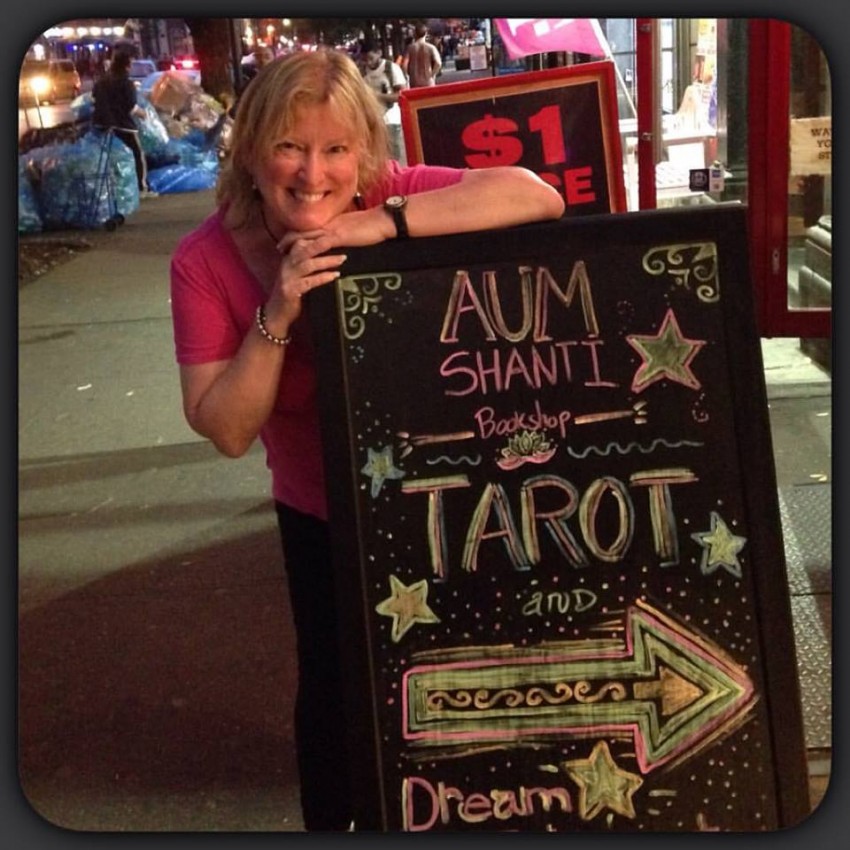 $1
AUM
SHANTI
Bookshop
TAROT
and
Dream